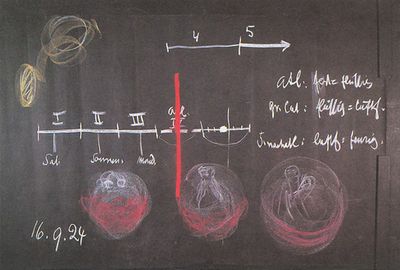 4 5
atl: fest = flüssig
I II III atl. IV
gr. Cat: flüssig = luftf.
luftf = feurig.
Sat. Sonnen. Mond.
16.9.24